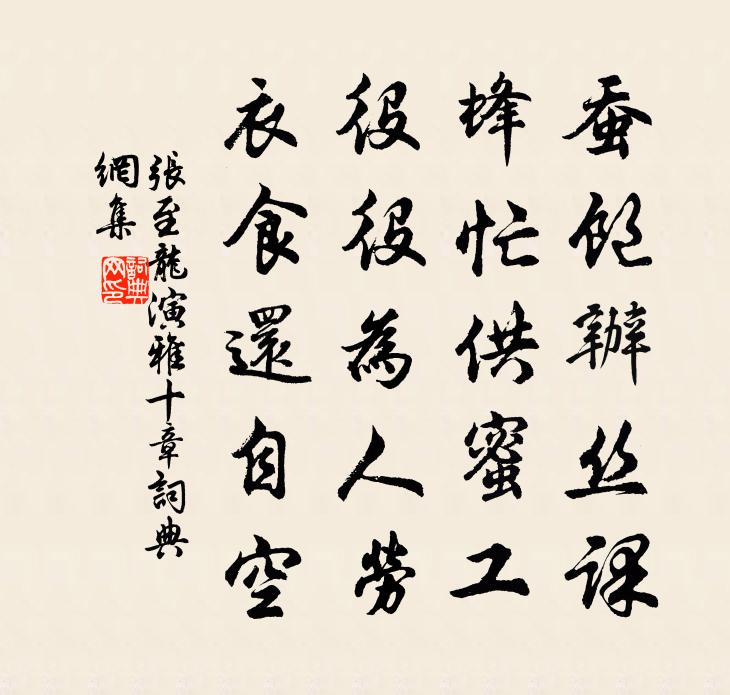 蚕飽辦丝課
蜂忙供蜜工
役役為人勞
衣食還自空
張至龍演雅十章詞典
網集
詞典
网印